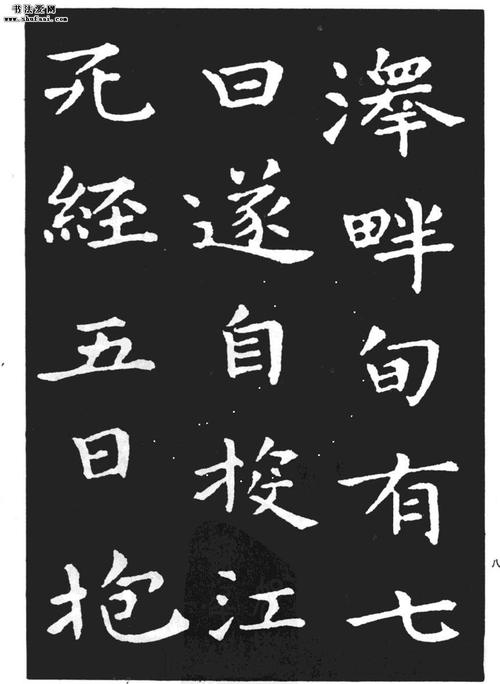 书法资网
www.shufazi.com
澤畔旬有七
日遂自投江
死經五日抱
八